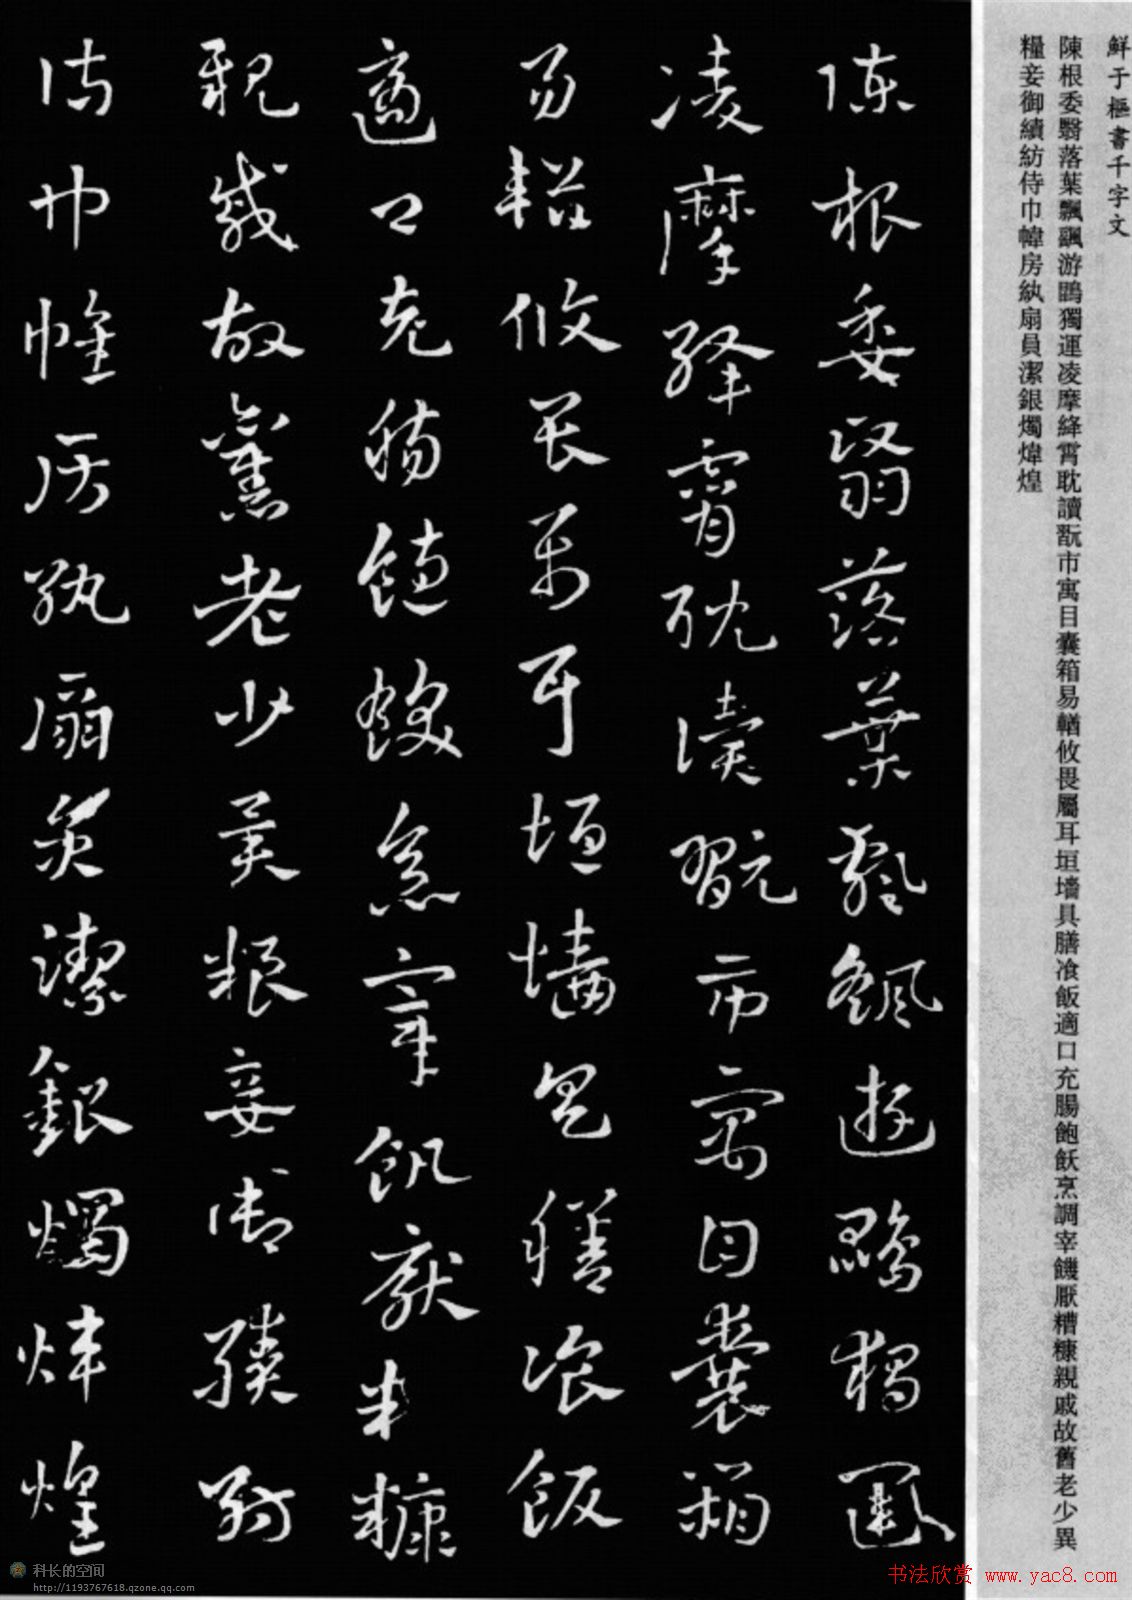 鮮于樞書千字文
陳根委翳落葉飄颻游鵾獨運凌摩絳霄耽讀翫市寓目囊箱易輶攸畏屬耳垣墻具膳飡飯適口充腸飽飫烹調宰饑厭糟糠親戚故舊老少異
糧妾御績紡侍巾幃房紈扇員潔銀燭煒煌
陳根委翳落葉飄颻遊鵾獨運
凌摩絳霄耽讀翫市寓目囊箱
易輶攸畏屬耳垣墻具膳飡飯
適口充腸飽飫烹宰飢厭糟糠
親戚故舊老少異糧妾御績紡
侍巾帷房紈扇員潔銀燭煒煌
科长的空间
http://1193767618.qzone.qq.com
书法欣赏 www.yac8.com